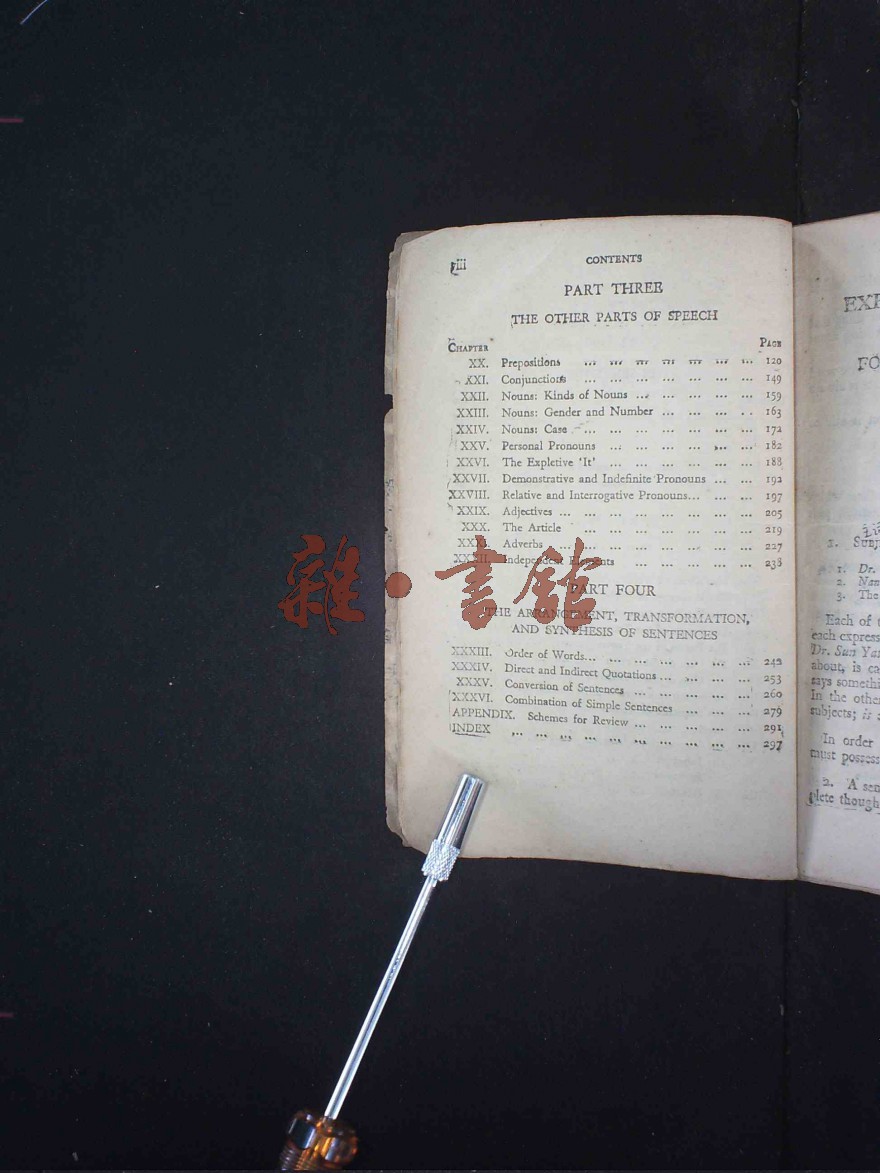 viii CONTENTS
PART THREE
THE OTHER PARTS OF SPEECH
CHAPTER PAGE
XX. Prepositions ... ... ... ... ... ... ... 120
XXI. Conjunctions ... ... ... ... ... ... ... 149
XXII. Nouns: Kinds of Nouns ... ... ... ... ... 159
XXIII. Nouns: Gender and Number ... ... ... ... 163
XXIV. Nouns: Case ... ... ... ... ... ... ... 172
XXV. Personal Pronouns ... ... ... ... ... ... 182
XXVI. The Expletive 'It' ... ... ... ... ... ... 188
XXVII. Demonstrative and Indefinite Pronouns ... ... 192
XXVIII. Relative and Interrogative Pronouns... ... ... 197
XXIX. Adjectives ... ... ... ... ... ... ... ... 205
XXX. The Article ... ... ... ... ... ... ... 219
XXXI. Adverbs ... ... ... ... ... ... ... ... 227
XXXII. Independent Elements ... ... ... ... ... 238
雜·書館
PART FOUR
THE ARRANGEMENT, TRANSFORMATION,
AND SYNTHESIS OF SENTENCES
XXXIII. Order of Words... ... ... ... ... ... ... 242
XXXIV. Direct and Indirect Quotations ... ... ... ... 253
XXXV. Conversion of Sentences ... ... ... ... ... 260
XXXVI. Combination of Simple Sentences ... ... ... 279
APPENDIX. Schemes for Review ... ... ... ... ... 291
INDEX ... ... ... ... ... ... ... ... ... ... 297
EX
FO
1. SUBJ
1. Dr.
2. Nan
3. The
Each of
each express
Dr. Sun Yat
about, is ca
says somethi
In the other
subjects; is
In order
must possess
2. A sen
plete though